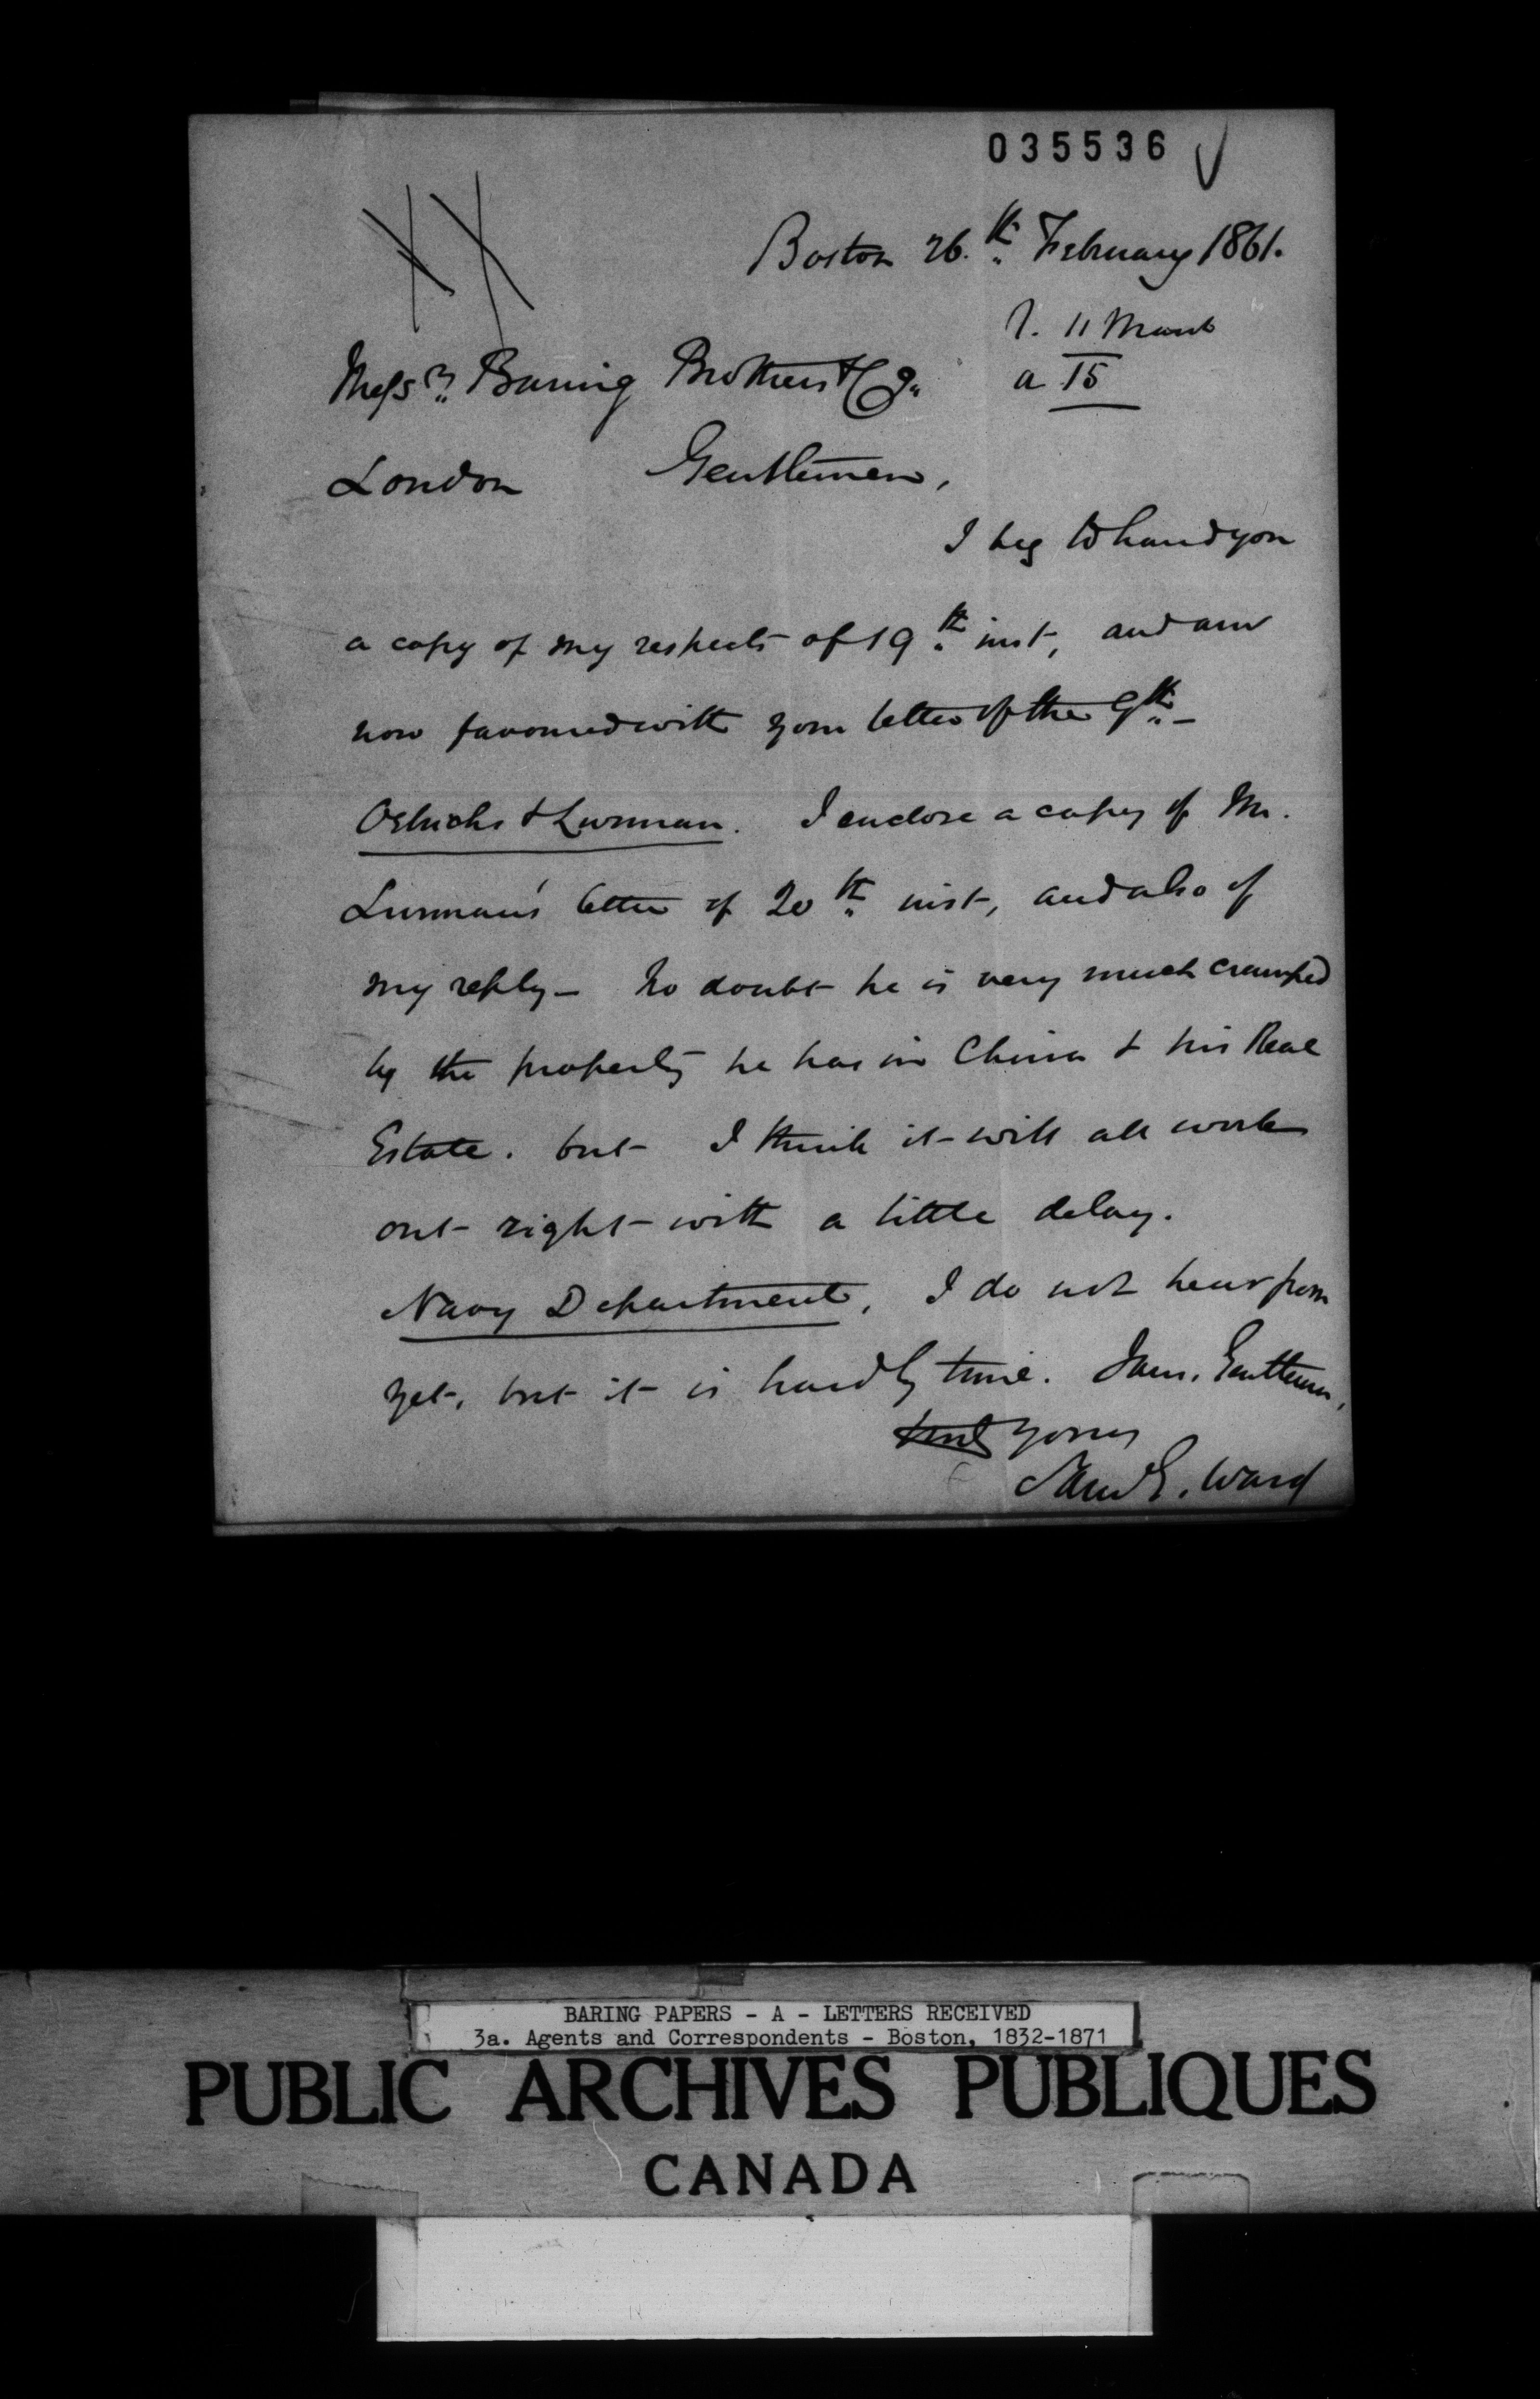 035536
Boston 26.th February 1861.
r. 11 March
a 15
Messrs. Baring Brothers & Co.
London Gentlemen,
I beg to hand you
a copy of my respects of 19th inst, and am
now favoured with your letter of the 9th –
Oelrichs & Lurman. I enclose a copy of Mr.
Lurman's letter of 20th inst, and also of
my reply – No doubt he is very much cramped
by the property he has in China & his Real
Estate. but I think it will all work
out right with a little delay.
Navy Department, I do not hear from
yet, but it is hardly time. I am, Gentlemen,
truly yours
Saml G. Ward
BARING PAPERS - A - LETTERS RECEIVED
3a. Agents and Correspondents - Boston, 1832-1871
PUBLIC ARCHIVES PUBLIQUES
CANADA